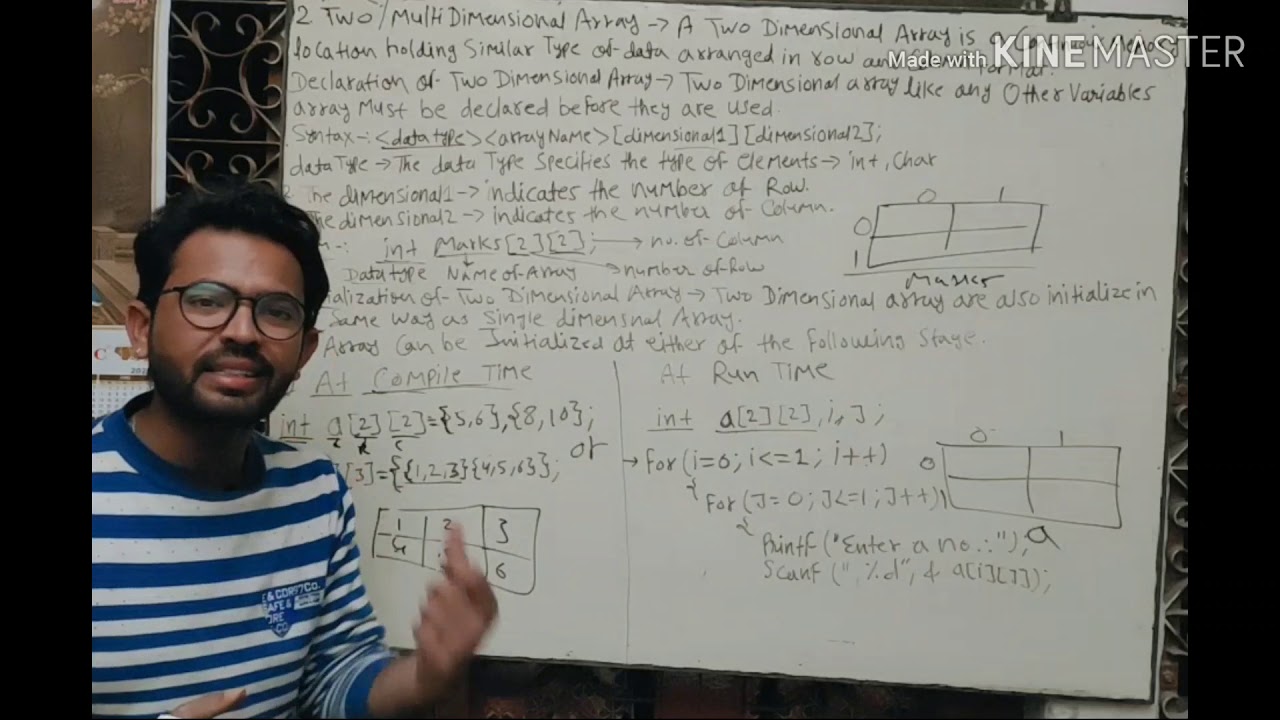 2 Two/Multi Dimensional Array → A Two Dimensional Array is a
Made with KINEMASTER
location holding Similar Type of data arranged in row
Declaration of Two Dimensional Array → Two Dimensional array like any Other Variables
array Must be declared before they are used.
Syntax -: <datatype><arrayName>[dimensional1][dimensional2];
data Type → The data Type Specifies the type of elements → int, Char
The dimensional1 → indicates the number of Row.
The dimensional2 → indicates the number of Column.
int Marks[2][2]; → no. of Column
Data type Name of Array number of Row
0 1
0
1
Marks
ialization of Two Dimensional Array → Two Dimensional array are also initialize in
Same way as Single dimensnal Array.
Array Can be Initialized at either of the Following Stage.
At Compile TIME
int a[2][2]={5,6},{8,10};
or
[3]={{1,2,3}{4,5,6}};
1 2 3
4 6
At Run TIME
int a[2][2],i,J;
→ for(i=0; i<=1; i++)
{ for(J=0; J<=1; J++)
{ Printf("Enter a no.:");
Scanf("%d", & a[i][J]);
0 1
0
1
a
E & CORP7CO.
SAFE &
ORE
& CO.
C